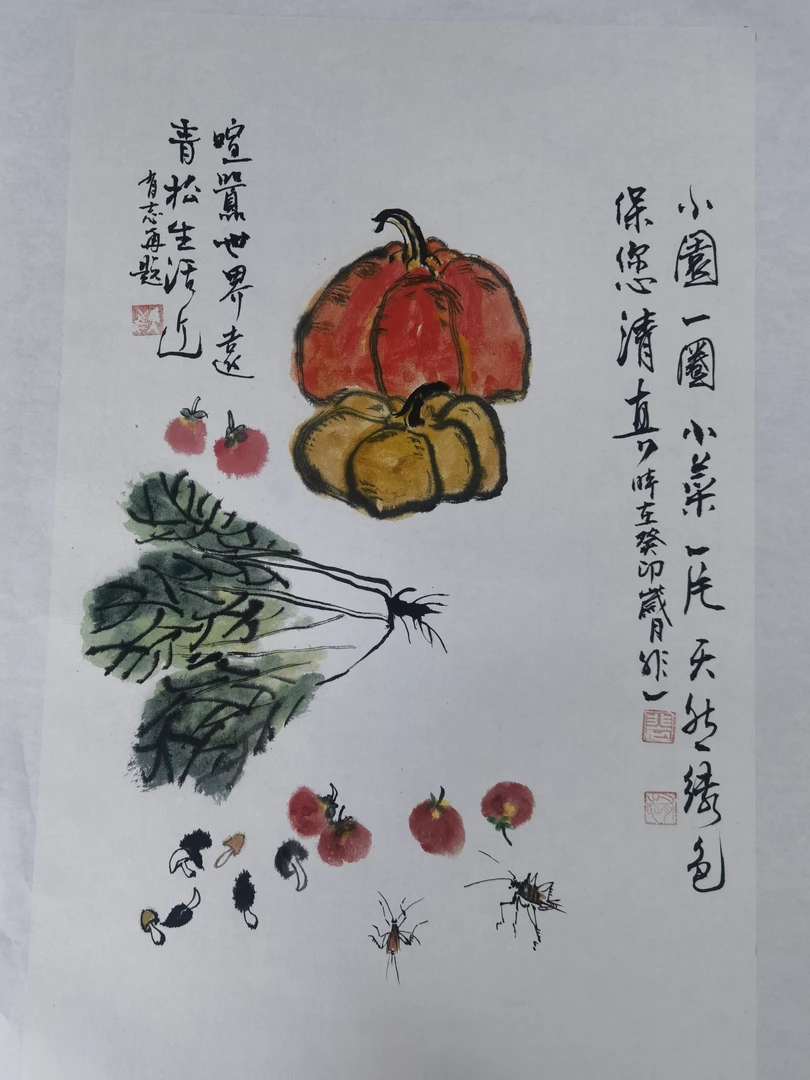 小園一圈小菜一片天然绿色
保您清真
时在癸卯歲月
喧嚣世界遠
青松生活近
有志再题